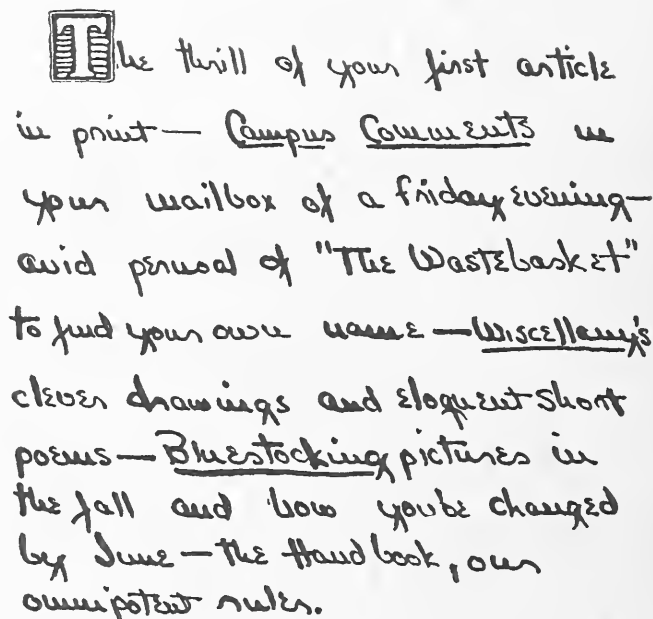 The thrill of your first article
in print— Campus Comments in
your mailbox of a friday evening—
avid perusal of "The Wastebasket"
to find your own name—Miscellany's
clever drawings and eloquent short
poems—Bluestocking pictures in
the fall and how you've changed
by June—the Handbook, our
omnipotent rules.